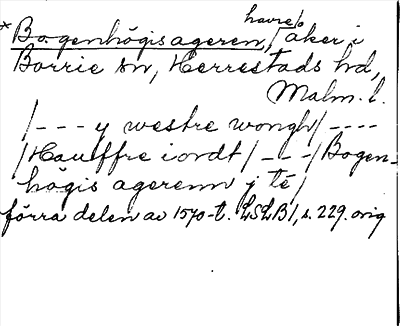 havre/
* Bogenhögisageren, / åker i
Borrie sn, Herrestads hd,
Malm. l.
/--- y westre wongh/ ----
/Hauffre iordt/ ---/Bogen-
högis agerenn j té/
förra delen av 1570-t. LSLB1, s. 229. orig